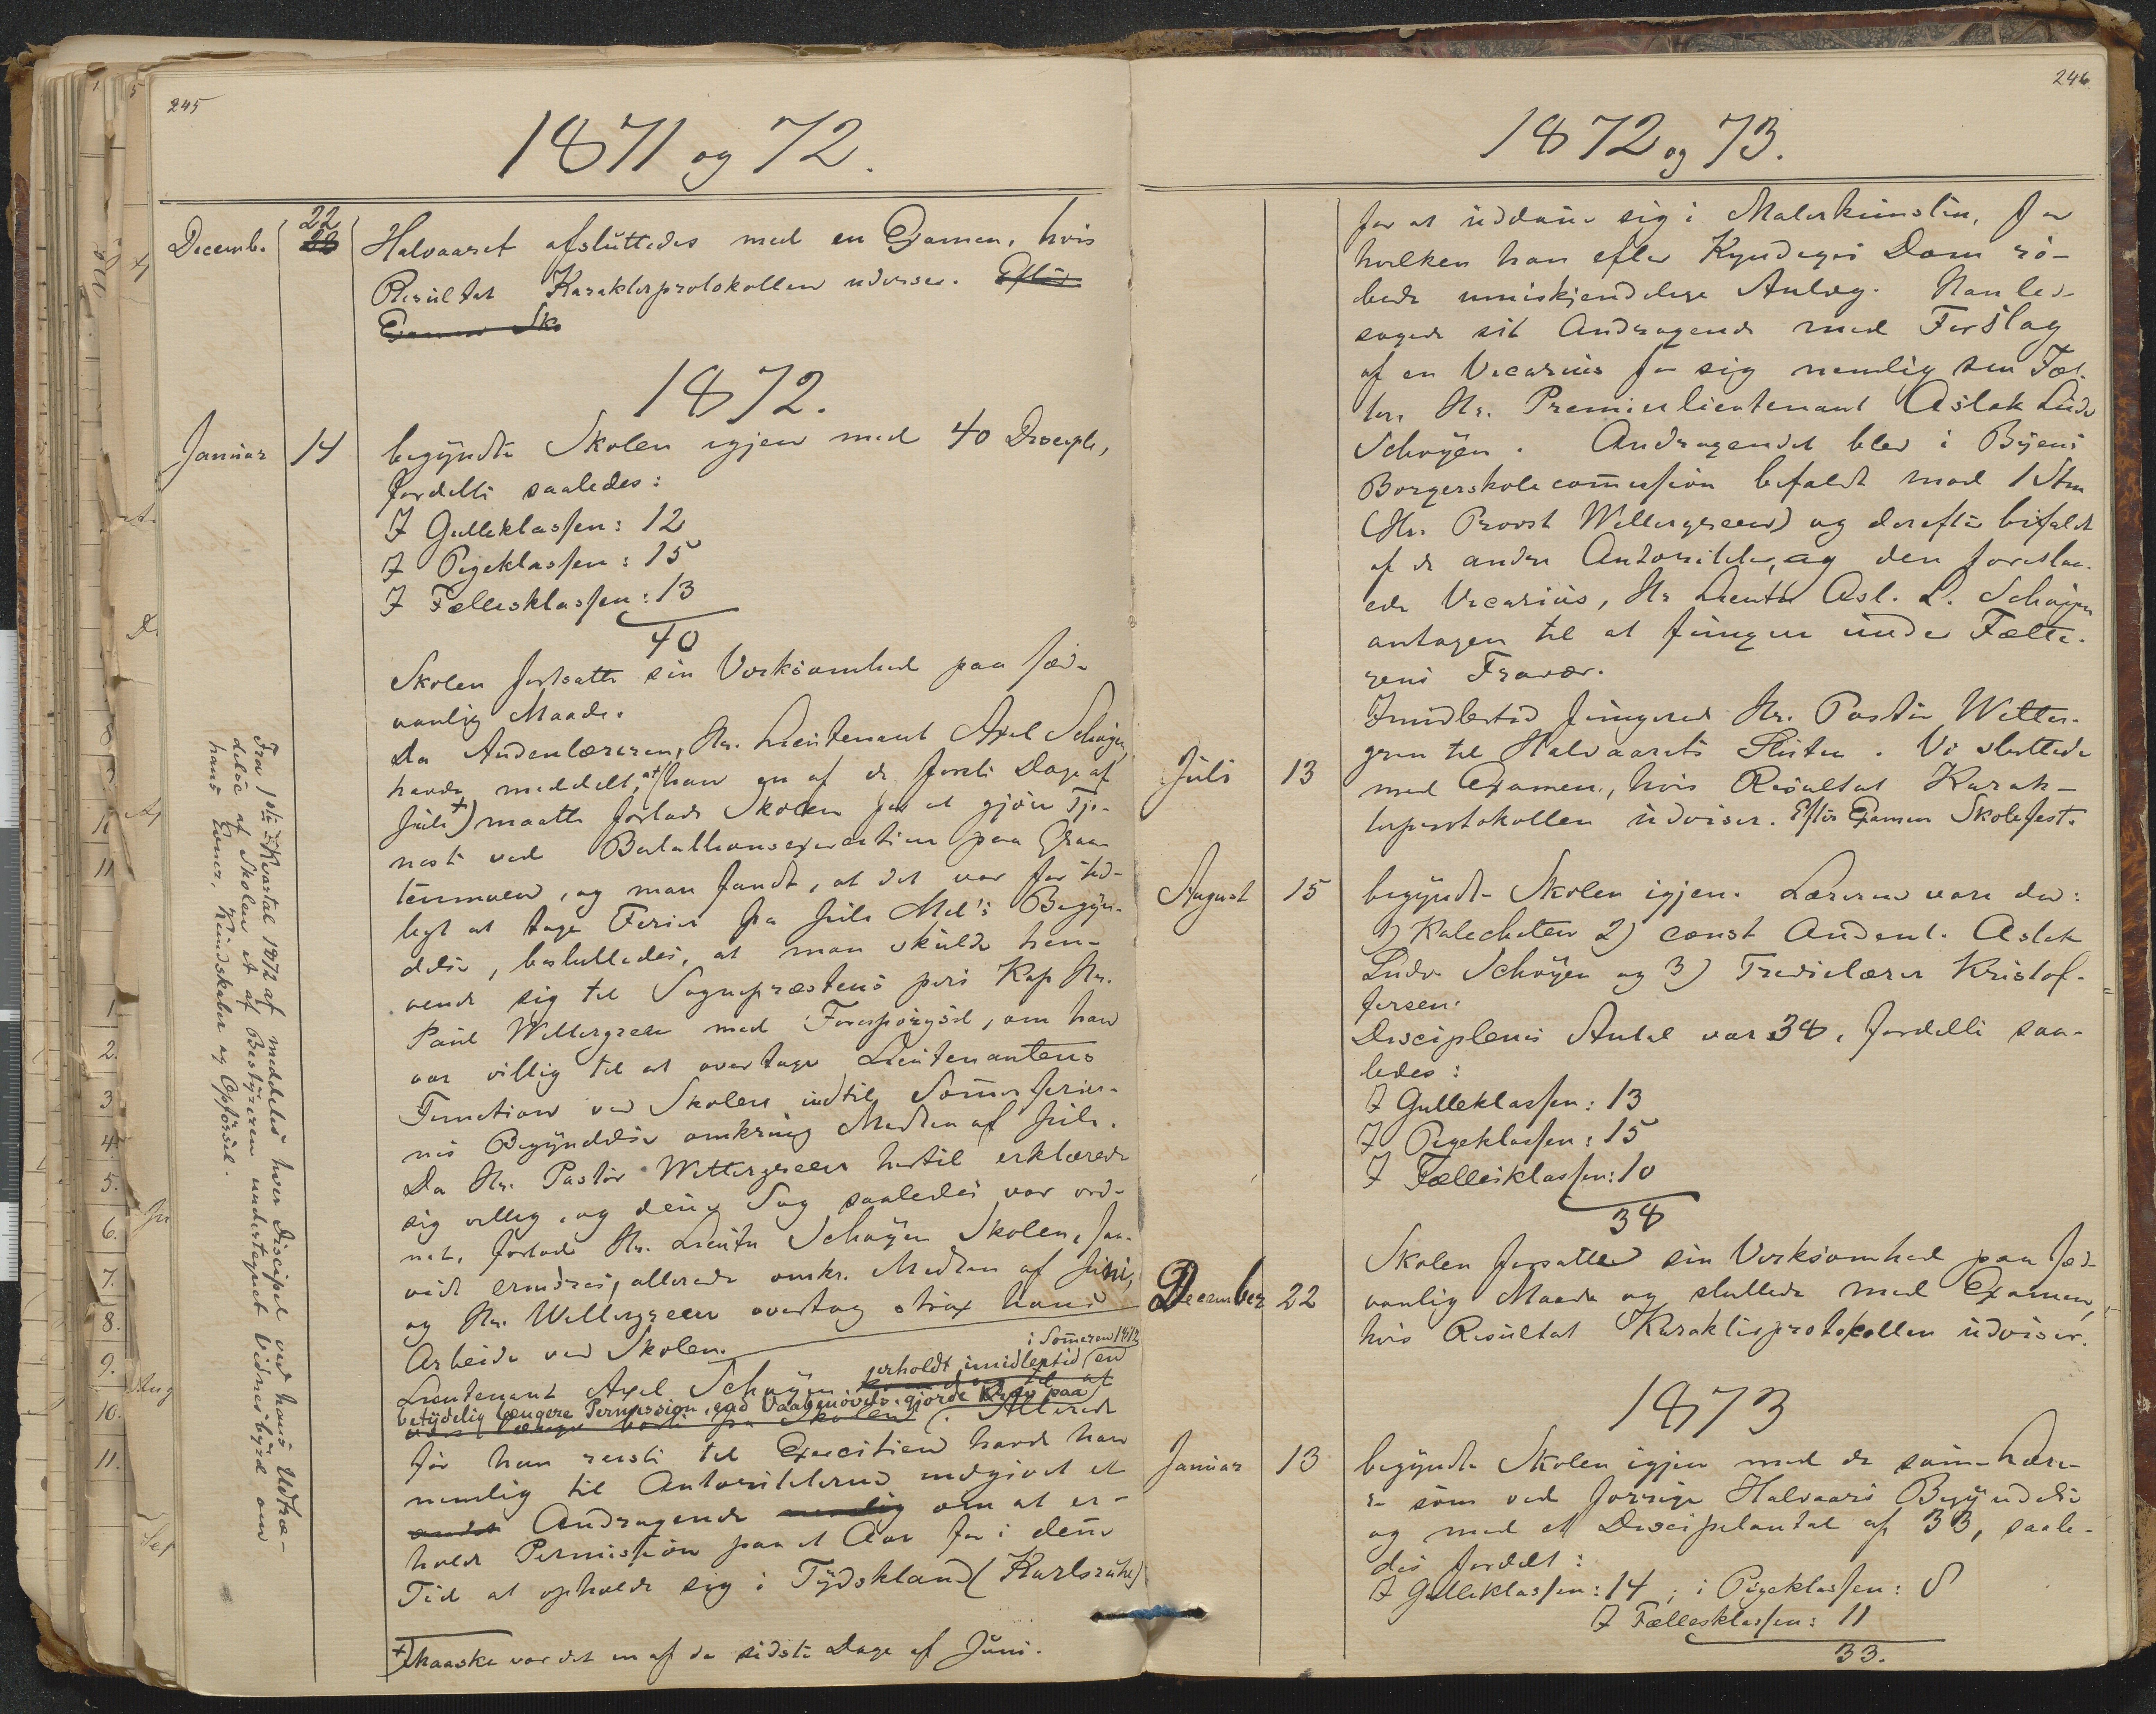 245
1871 og 72.
Decemb. 22 Halvaaret afsluttedes med en Examen, hvis
Resultat Karakterprotokollen udviser. Efter
Examen Sko
1872.
Januar 14 begyndte Skolen igjen med 40 Disciple,
fordelte saaledes:
I Gutteklassen: 12
I Pigeklassen: 15
I Fællesklassen: 13
40
Skolen fortsatte sin Virksomhed paa sæd-
vanlig Maade.
Da Andenlæreren, Hr. Lieutenant Axel Schøyen,
havde meddelt, at han en af de første Dage af
Juli +) maatte forlade Skolen for at gjøre Tje-
neste ved Batallionsexercitien paa Gra-
tenmoen, og man fandt, at det var for tid-
ligt at tage Ferier fra Juli Md's Begyn-
delse, besluttedes, at man skulde hen-
vende sig til Sognepræstens pers Kap Hr.
Paul Wettergreen med Forespørgsel, om han
var villig til at overtage Lieutenantens
Function ved Skolen indtil Som̅erferier-
nes Begyndelse omkring Midten af Juli.
Da Hr. Pastor Wettergreen hertil erklærede
sig villig, og den̅e Sag saaledes var ord-
net, forlod Hr. Lieutn Schøyen Skolen, saa-
vidt erindres, allerede omkr. Midten af Juni,
og Hr. Wettergreen overtog strax hans
Arbeide ved Skolen.
i Som̅eren 1872
Lieutenant Axel Schøyen erholdt imidlertid en
betydelig længere Permission, end Vaabenøvels. gjorde Krav paa
Allerede
før han reiste til Exercitien havde han
nemlig til Autoriteterne indgivet et
andet Andragende nemlig om at er-
holde Permission paa et Aar for i den̅e
Tid at opholde sig i Tydskland (Karlsruhe)
+) Maaske var det en af de sidste Dage af Juni.
Fra 1ste Kvartal 1872 af meddeles hver Discipel ved hans Udtræ-
delse af Skolen et af Bestyreren undertegnet Vidnesbyrd om
hans Evner, Kundskaber og Opførsel.
246
1872 og 73.
for at uddan̅e sig i Malerkunsten, for
hvilken han efter Kyndiges Dom rø-
bede umiskjendelige Anlæg. Han led-
sagede sit Andragende med Forslag
af en Vicarius for sig nemlig sin Fæt-
ter, Hr. Premierlieutenant Aslak Ludv
Schøyen. Andragendet blev i Byens
Borgerskolecom̅ission bifaldt mod 1 Stm̅
(Hr. Provst Wettergreen) og derefter bifaldt
af de andre Autoriteter, og den foreslaa-
ede Vicarius, Hr Lieutn Asl. L. Schøyen
antagen til at fungere under Fætte-
rens Fravær.
Imidlertid fungerede Hr. Pastor Wetter-
green til Halvaarets Slutten. Vi sluttede
Juli 13 med Examen, hvis Resultat Karak-
terprotokollen udviser. Efter Examen Skolefest.
August 15 begyndte Skolen igjen. Lærerne vare da:
1) Katecheten 2) const Andenl. Aslak
Ludv Schøyen og 3) Tredielærer Kristof-
fersen.
Disciplenes Antal var 38, fordelte saa-
ledes:
I Gutteklassen: 13
I Pigeklassen: 15
I Fællesklassen: 10
38
Skolen forsatte sin Virksomhed paa sæd-
December 22 vanlig Maade og sluttede med Examen,
hvis Resultat Karakterprotokollen udviser.
1873
Januar 13 begyndte Skolen igjen med de sam̅e Lære-
re som ved forrige Halvaars Begyndelse
og med et Discipelantal af 33, saale-
des fordelt:
I Gutteklassen: 14; i Pigeklassen: 8
I Fællesklassen: 11
33.